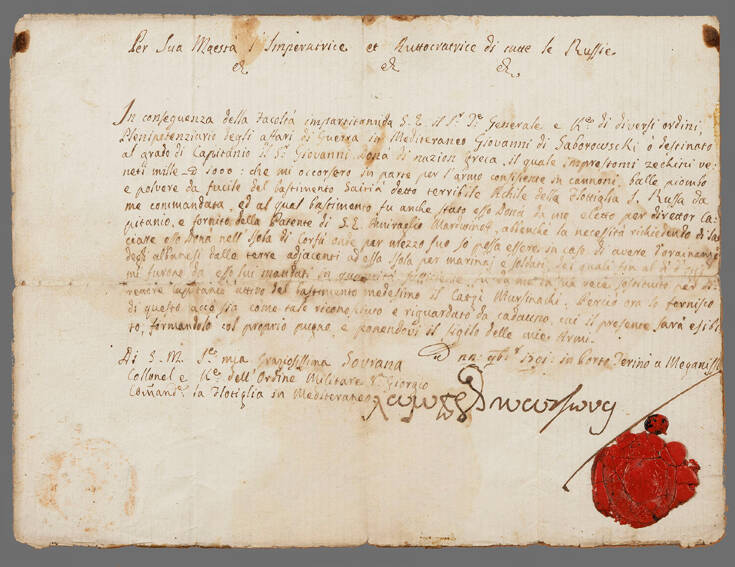 Per Sua Maestà l'Imperatrice et Auttocratrice di tutte le Russie
&c &c &c
In conseguenza della facoltà impartitami da S. E. il Sr. Te. Generale e Kr. di diversi ordini,
Plenipotenziario degli affari di Guerra in Mediteraneo Giovanni di Saborowschi ò destinato
al grado di Capitanio il Sr. Giovanni Donà di nazion Greca, il quale imprestomi zechini ve-
neti mille N 1000: che mi occorsero in parte per l'armo consistente in cannoni, balle piombo
e polvere da fucile del bastimento detto terribile Achile della flotiglia I. Russa da
me commandata, ed al qual bastimento fu anche stato esso Donà da me eletto per director Ca-
pitanio, e fornito della Patente di S. E. Amiraglio Mordwinof, allorche la necessità richiedendo di la-
sciare esso Donà nell'Isola di Corfù onde per mezzo suo so possa essere in caso di avere
degli albanesi dalle terre adjacenti ad essa Isola per marinaj e soldati, dei quali fin al dì d'oggi
mi furono da esso lui mandati in quantità sufficiente, fu da me in sua vece sostituito per di-
rettore capitanio attivo del bastimento medesimo il Capi. Mursinachi. Perciò ora lo fornisco
di questo acciò sia come tale riconosciuto e riguardato da cadauno, cui il presente sarà esibi-
to, formandolo col proprio pugno, e ponendovi il sigilo delle mie Armi.
Di S. M. mia Graziosissima Sovrana
Collonel e Kr. dell'Ordine Militare Sn. Giorgio
Comandte. la flotiglia in Mediteraneo
1791 in Porto Terino a Meganissi
λαμπρος